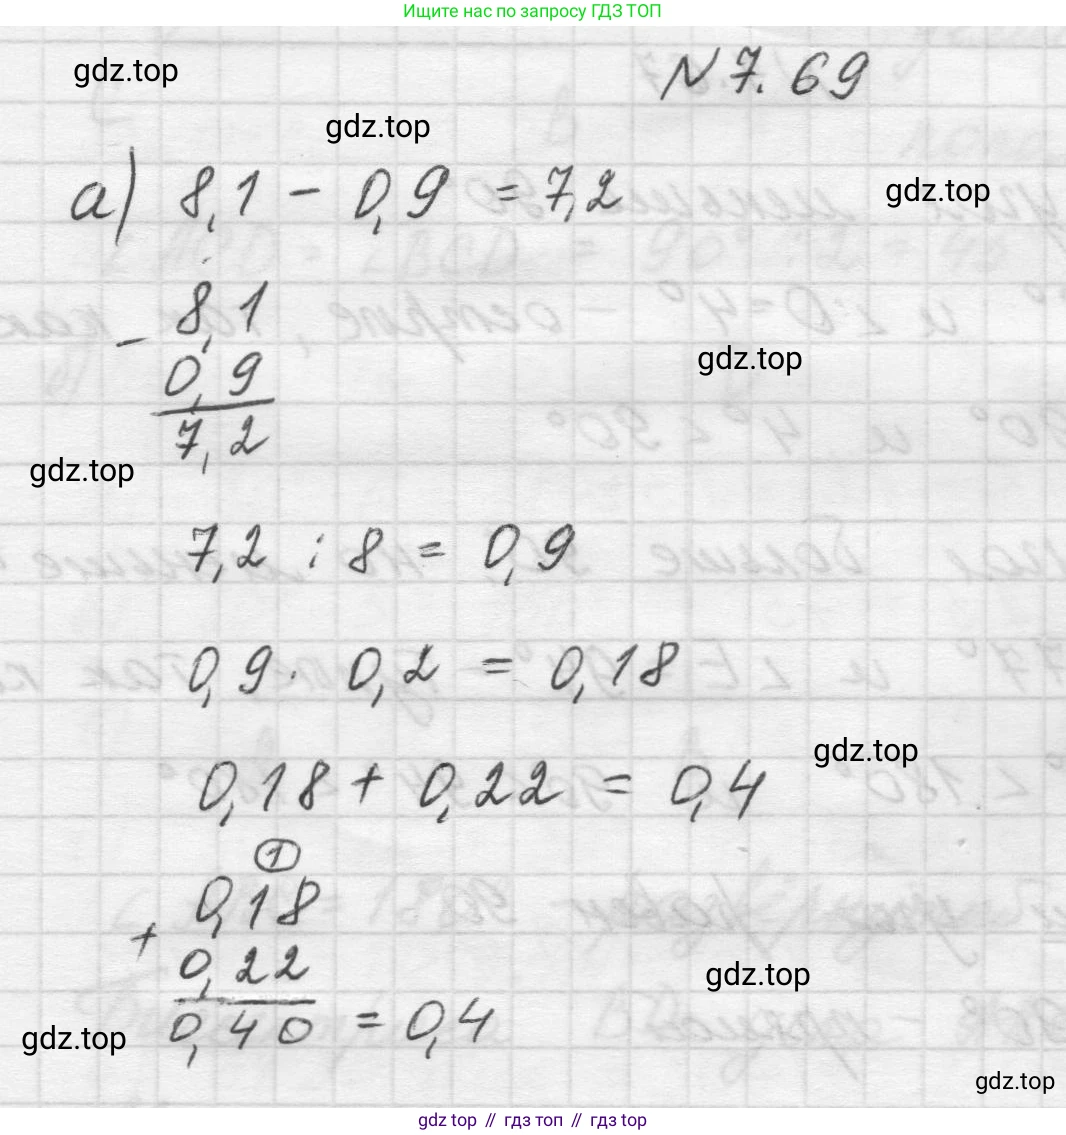 Ищите нас по запросу ГДЗ ТОП
№ 7.69
gdz.top
gdz.top
а) 8,1 - 0,9 = 7,2
gdz.top
- 8,1
0,9
7,2
gdz.top
gdz.top
7,2 : 8 = 0,9
0,9 · 0,2 = 0,18
gdz.top
0,18 + 0,22 = 0,4
1
+ 0,18
0,22
0,40 = 0,4
gdz.top
gdz.top
gdz.top
gdz top // гдз топ // gdz top